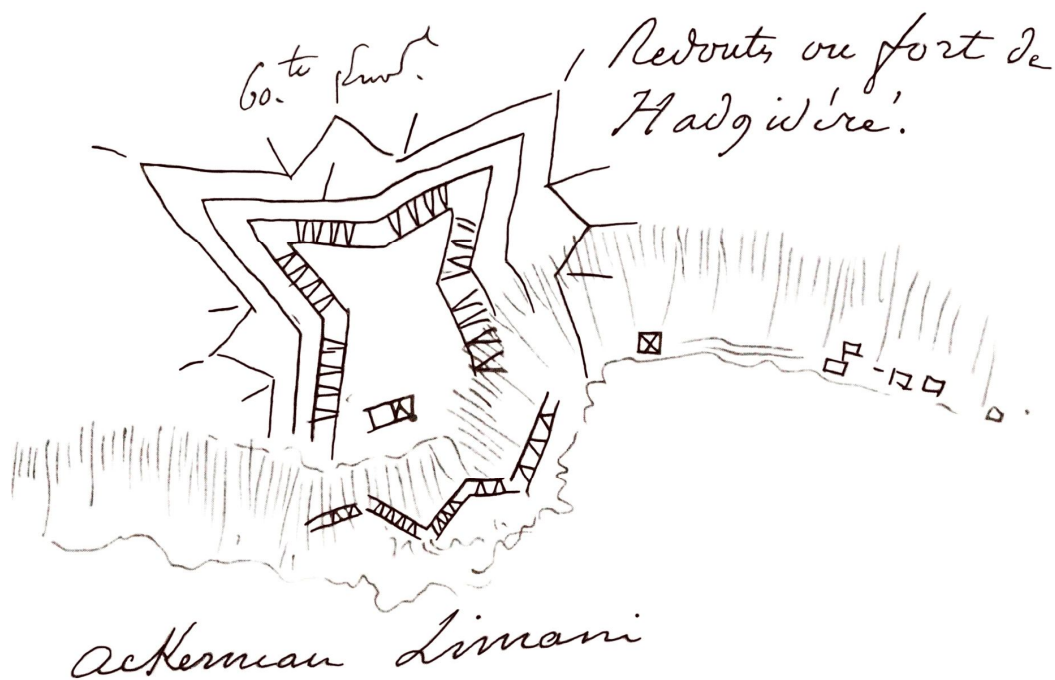 60.te
Redoute ou fort de
Hadgidéré.
Ackerman Limani